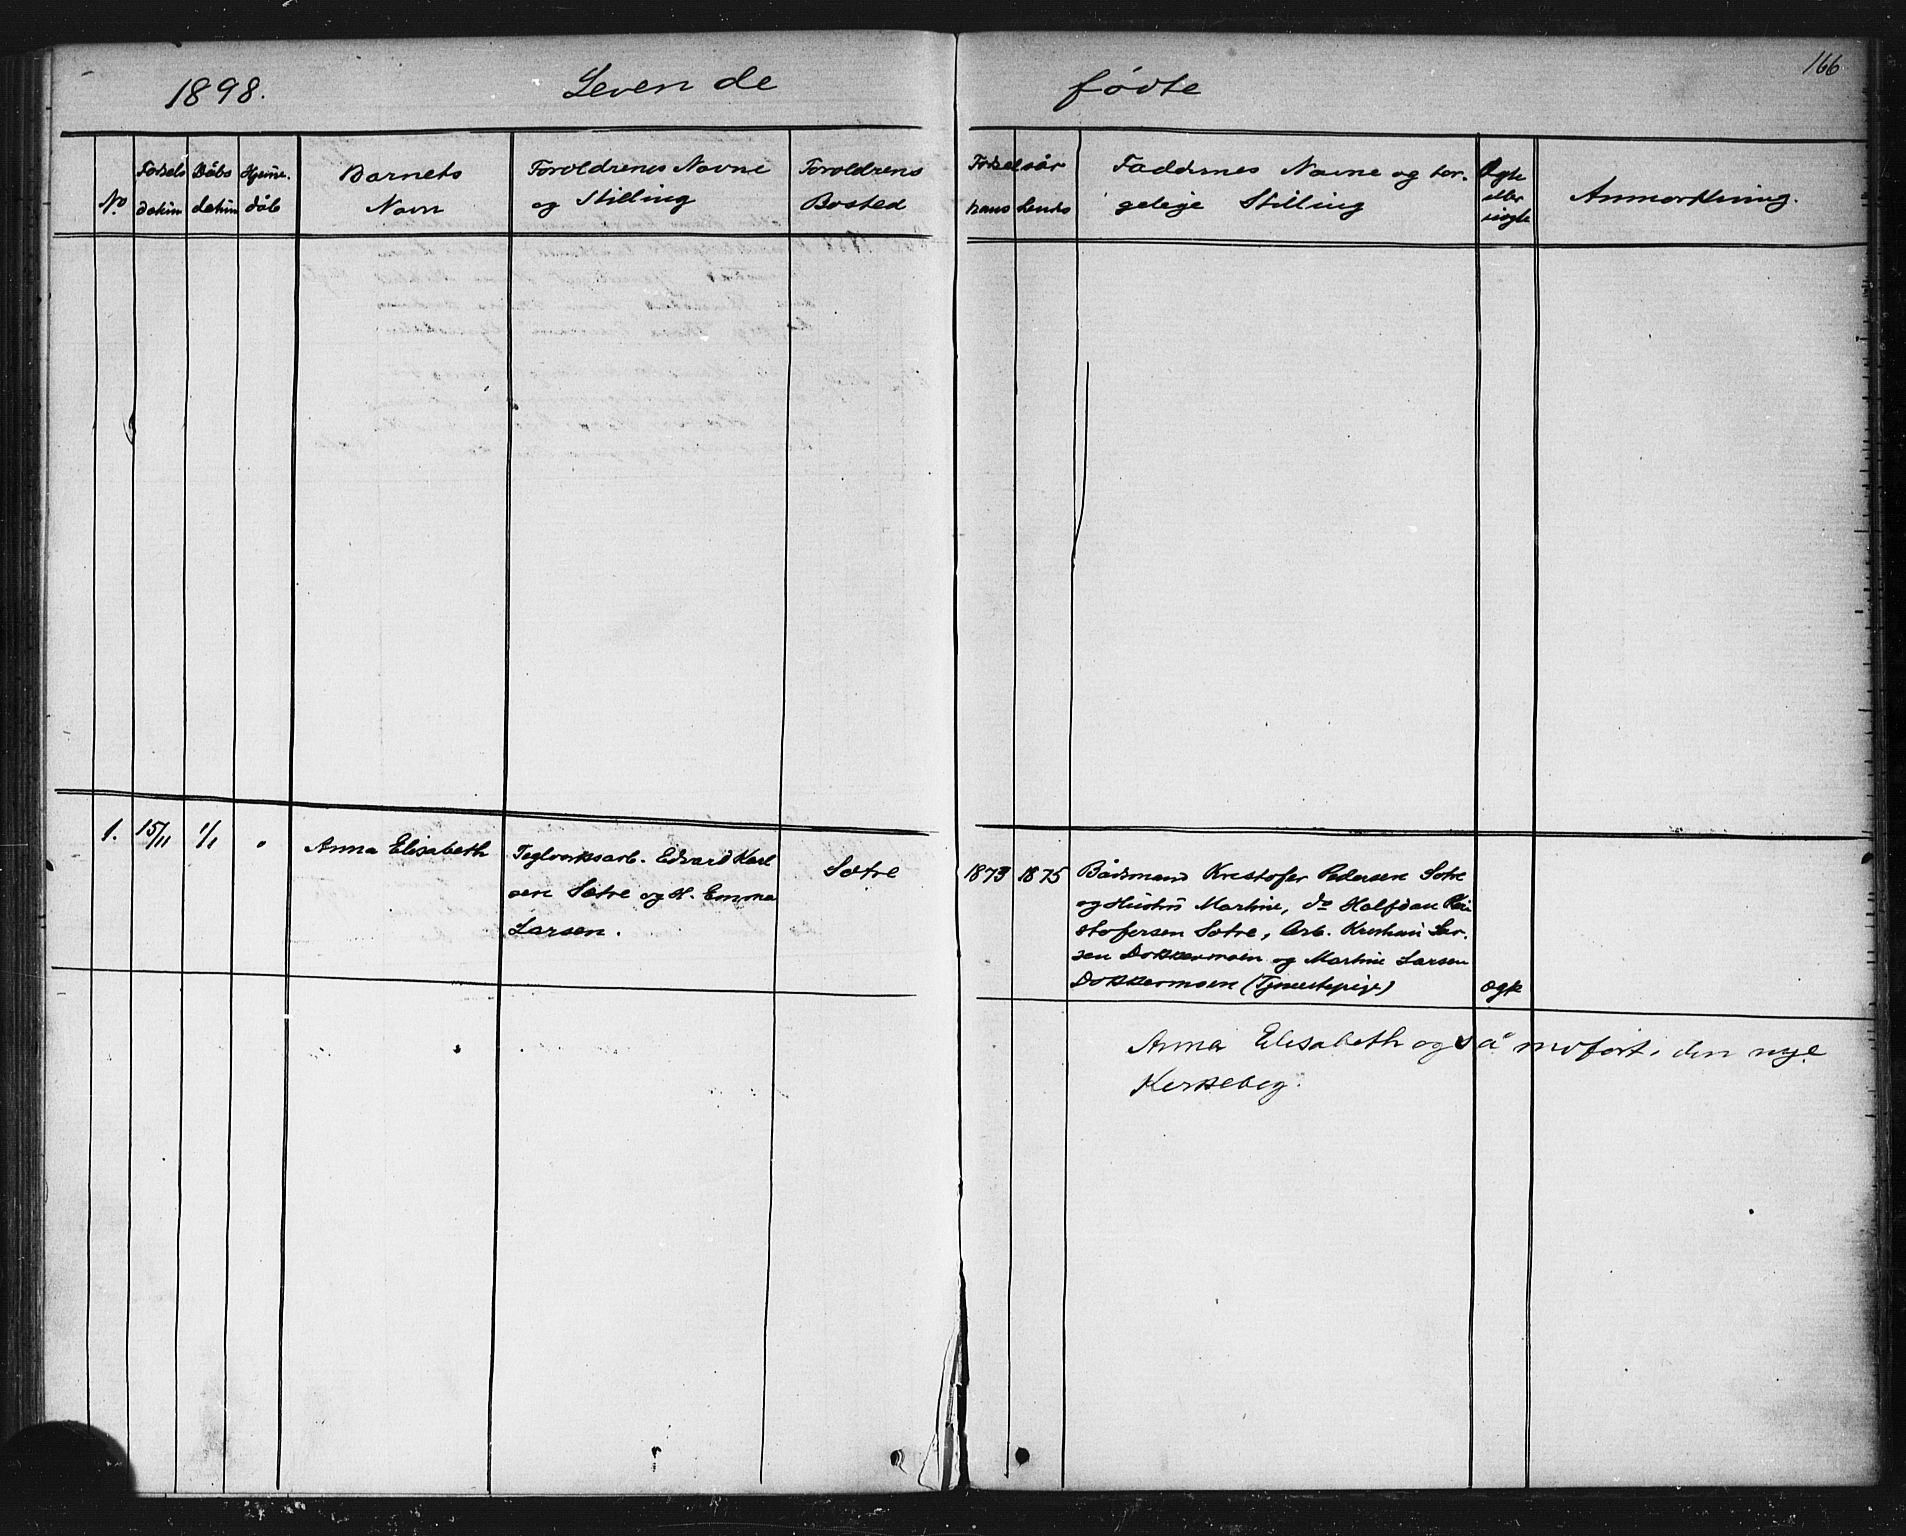 166
1898. Levende fødte
No
Fødsels
datum
Dåbs
datum
Hjeme.
dåb
Barnets
Navn
Foroldrenes Navne
og Stilling
Foroldrens
Bosted
Fødselsår
hans hends
Faddernes Navne og bor-
gelige Stilling
Ægte
eller
uægte
Anmerkning.
1. 15/11 1/1 " Anna Elisabeth
Teglverksarb. Edvard Karl
sen Sætre og H. Emma
Larsen.
Sætre
1873 1875
Bådsmand Kristofer Pedersen Sætre
og Hustru Martine, do Halfdan Kri
stofersen Sætre, Arb. Kristian Lar-
sen Dokkermoen og Martine Larsen
Dokkermoen (Tjenestepige)
ægte
Anna Elisabeth også indført i den nye
Kirkebog.